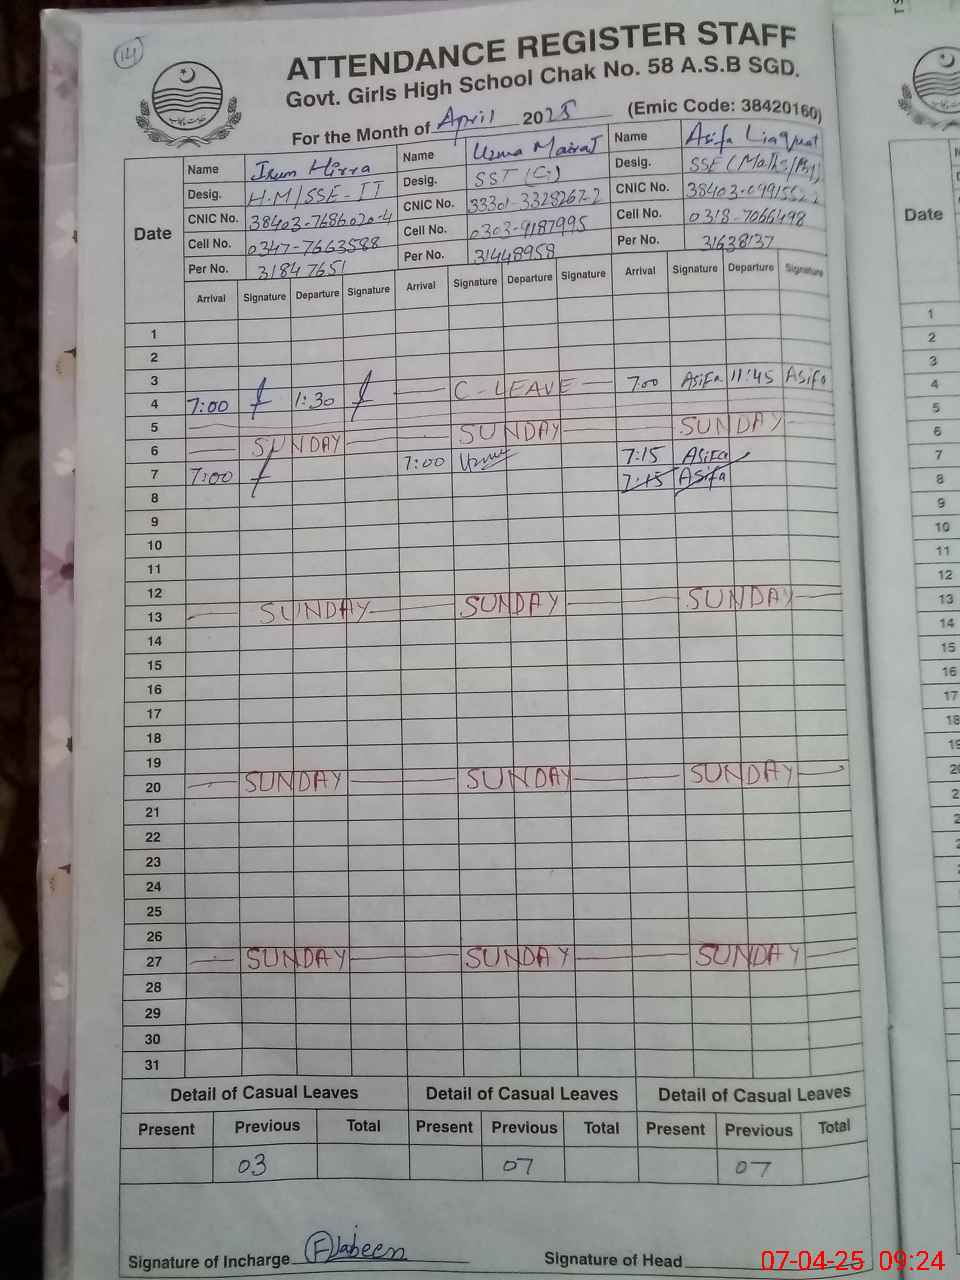 14
ATTENDANCE REGISTER STAFF
Govt. Girls High School Chak No. 58 A.S.B SGD.
(Emic Code: 38420160)
For the Month of April 2025
Date
Name Irum Hirra
Desig. H.M/SSE-IT
CNIC No. 38403-7686020-4
Cell No. 0347-7663588
Per No. 31847651
Name Uzma
Desig. SST
CNIC No. 33301-3328267-2
Cell No. 0303-9187995
Per No. 31448958
Name Asifa Liaquat
Desig. SSE (Maths/
CNIC No.
Cell No. 0318-7066498
Per No. 31638137
Arrival Signature Departure Signature Arrival Signature Departure Signature Arrival Signature Departure Signature
1
2
3
4 7:00 1:30 C-LEAVE 7:00 Asifa 11:45 Asifa
5
6 SUNDAY SUNDAY SUNDAY
7 7:00 7:00 Uzma 7:15 Asifa
8 7:15 Asifa
9
10
11
12
13 SUNDAY SUNDAY SUNDAY
14
15
16
17
18
19
20 SUNDAY SUNDAY SUNDAY
21
22
23
24
25
26
27 SUNDAY SUNDAY SUNDAY
28
29
30
31
Detail of Casual Leaves Detail of Casual Leaves Detail of Casual Leaves
Present Previous Total Present Previous Total Present Previous Total
03 07 07
Signature of Incharge Signature of Head
07-04-25 09:24
Date
1
2
3
4
5
6
7
8
9
10
11
12
13
14
15
16
17
18